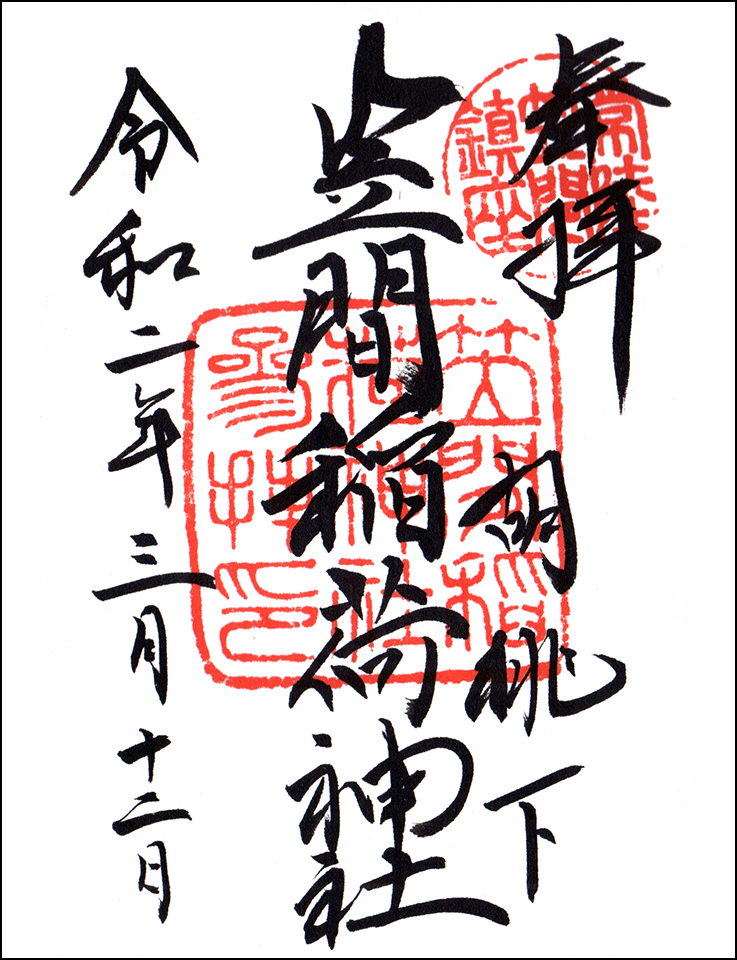 奉拝
常陸
笠間
鎮座
胡桃下
笠間稲荷神社
笠間稲
荷神社
参拝印
令和二年三月十二日